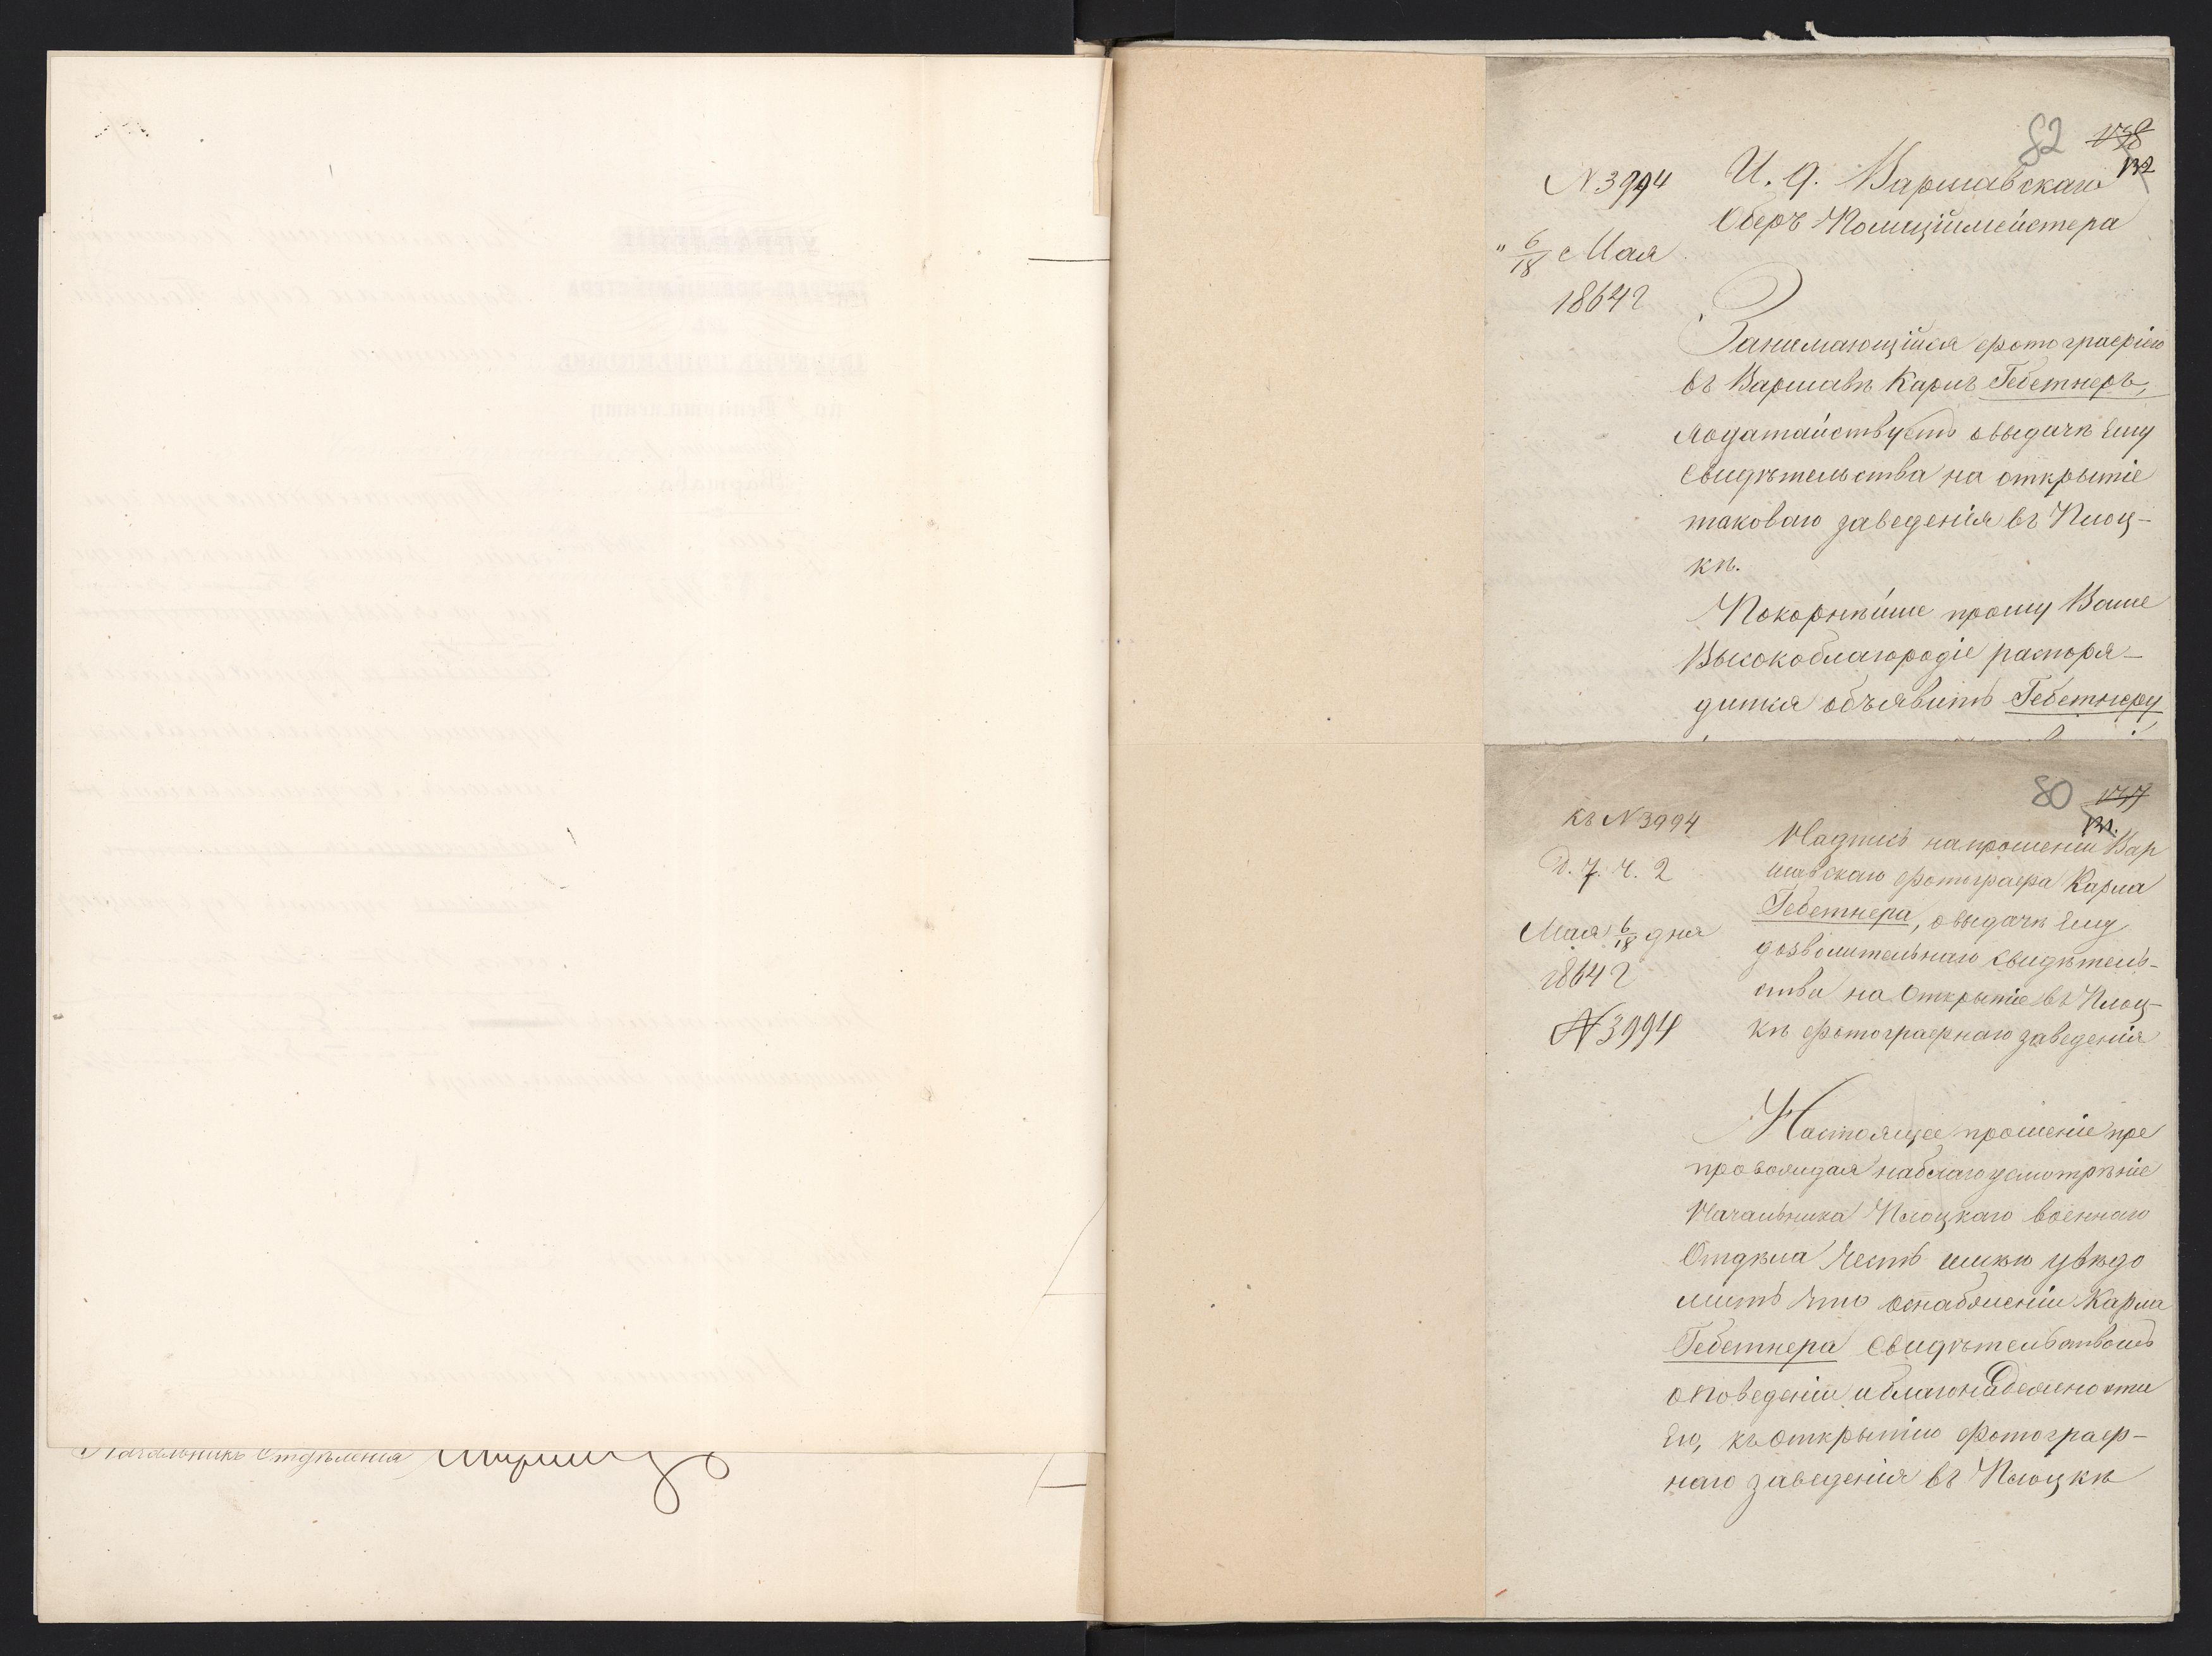 Начальникъ Отдѣленія
82 138
132
N 3994
" 6/18 " Мая
1864 г
И. д. Варшавскаго
Оберъ Полиціймейстера
Занимающійся фотографіею
въ Варшавѣ Карлъ Гебетнеръ,
ходатайствуетъ о выдачѣ ему
свидѣтельства на открытіе
таковаго заведенія въ Плоц-
кѣ.
Покорнѣйше прошу Ваше
Высокоблагородіе распоря-
диться объявить Гебетнеру
80 137
131.
къ N 3994
Д. 7. ч. 2
Мая 6/18 дня
1864 г
N 3994
Надпись на прошеніи Вар
шавскаго фотографа Карла
Гебетнера, о выдачѣ ему
дозволительнаго свидѣтель-
ства на открытіе въ Плоц-
кѣ фотографнаго заведенія
Настоящее прошеніе пре
провождая на благоусмотрѣніе
Начальника Плоцкаго военнаго
Отдѣла честь имѣю увѣдо
мить что о снабженіи Карла
Гебетнера свидѣтельствомъ
о поведеніи и благонадежности
его, къ открытію фотограф-
наго заведенія въ Плоцкѣ